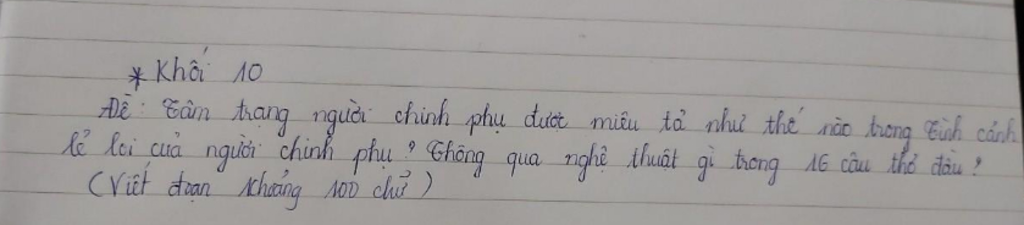 * Khối 10
Đề: Tâm trạng người chinh phụ được miêu tả như thế nào trong Tình cảnh
lẻ loi của người chinh phụ? Thông qua nghệ thuật gì trong 16 câu thơ đầu?
(Viết đoạn khoảng 100 chữ)